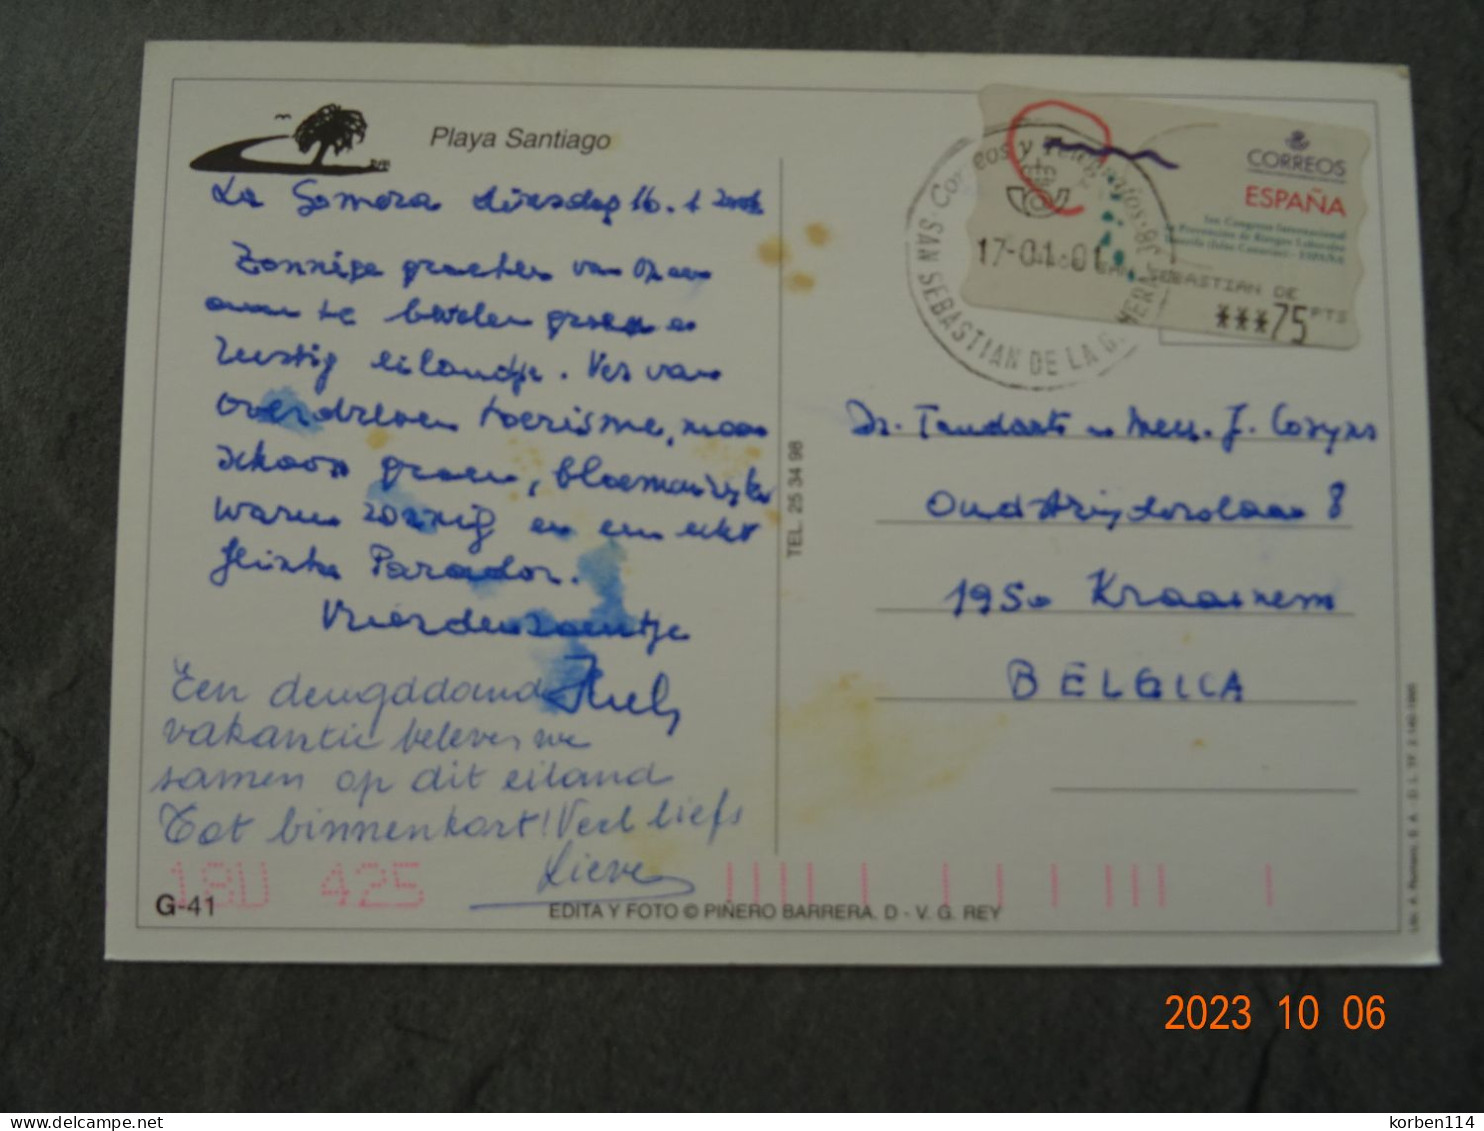 Playa Santiago
La Gomera dinsdag 16.1 2001
Zonnige groeten van op een
om te groen en
rustig eilandje. Ver van
overdreven toerisme, maar
schoon groen, bloemenrijk
warm zonnig en een echt
Parador.
Vriendenzoentje
Een deugddoend
vakantie beleven we
samen op dit eiland
Tot binnenkort! Veel liefs
Lieve
18U 425
G-41
EDITA Y FOTO © PIÑERO BARRERA. D - V. G. REY
TEL. 25 34 98
Correos y Telégrafos · 38
SAN SEBASTIAN DE LA GOMERA
17-01-01
CORREOS
ESPAÑA
1er. Congreso Internacional
Prevención de Riesgos Laborales
Tenerife (Islas Canarias) - ESPAÑA
SEBASTIAN DE
***75 PTS
Dr. Tandarts en Mevr. J. Cosyns
Oud Strijderslaan 8
1950 Kraainem
BELGICA
2023 10 06
delcampe.net
korben114